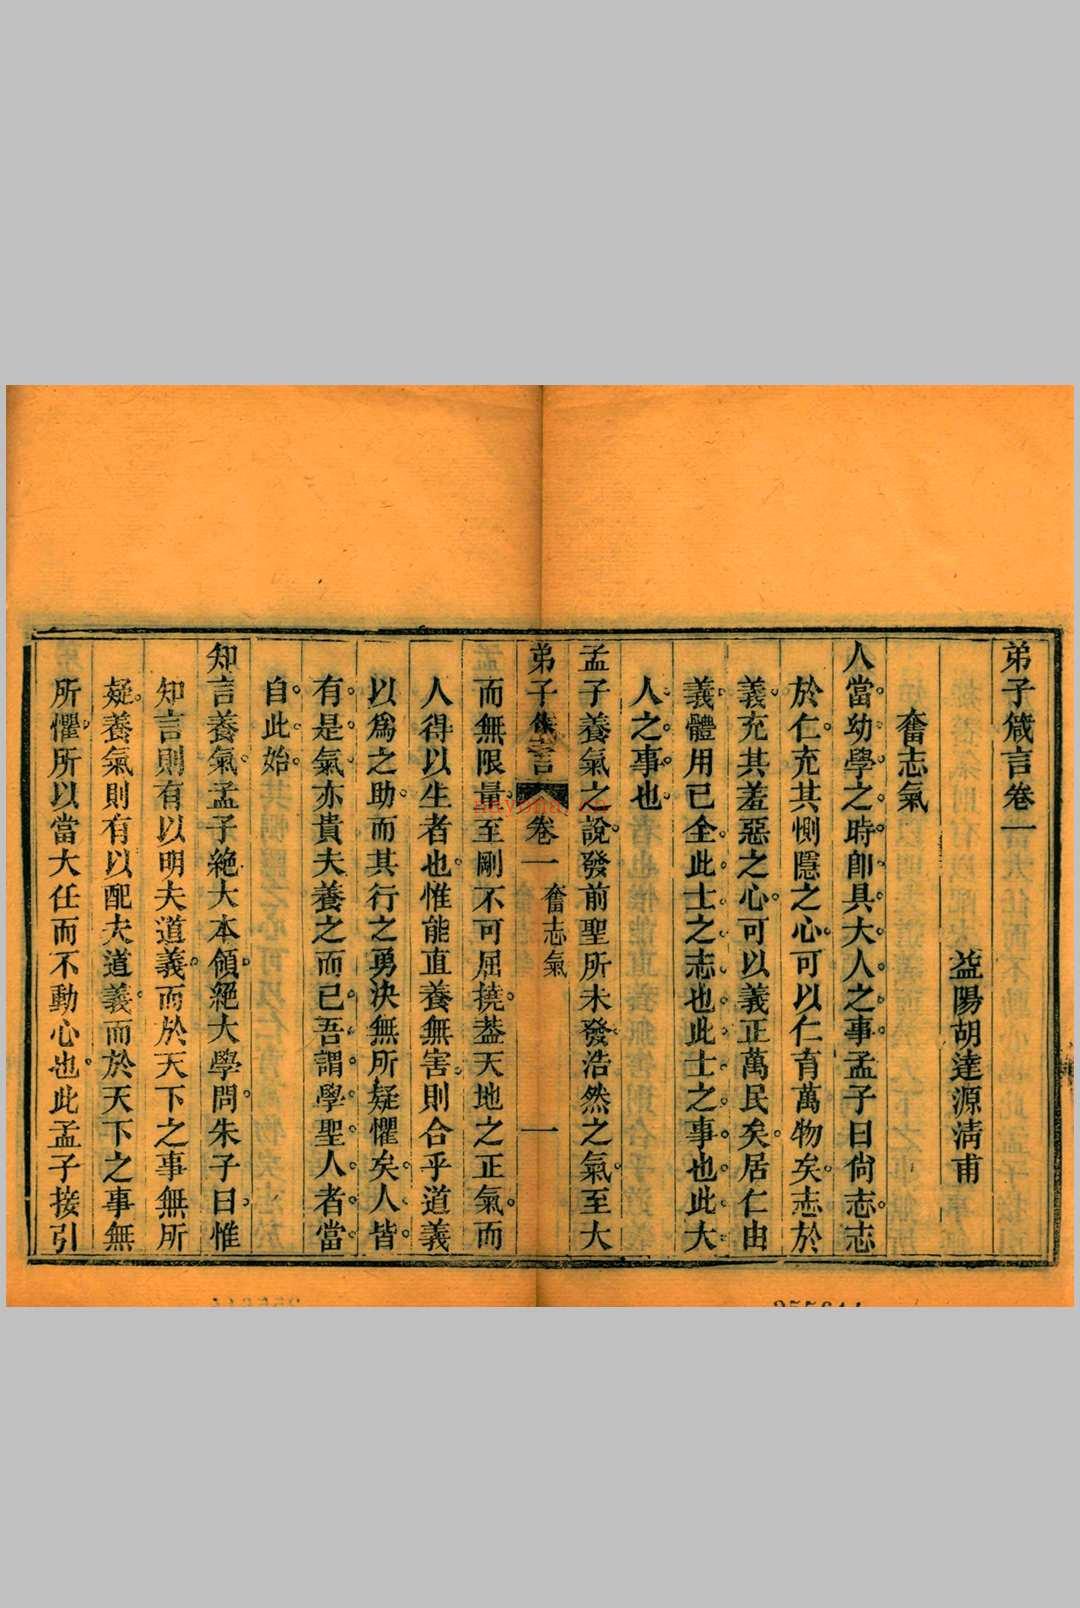 弟子箴言卷一
益陽胡達源清甫
奮志氣
人當幼學之時卽具大人之事孟子曰尙志志
於仁充其惻隱之心可以仁育萬物矣志於
義充其羞惡之心可以義正萬民矣居仁由
義體用已全此士之志也此士之事也此大
人之事也
孟子養氣之說發前聖所未發浩然之氣至大
弟子箴言
卷一
奮志氣
一
而無限量至剛不可屈撓葢天地之正氣而
人得以生者也惟能直養無害則合乎道義
以爲之助而其行之勇決無所疑懼矣人皆
有是氣亦貴夫養之而已吾謂學聖人者當
自此始
知言養氣孟子絶大本領絕大學問朱子曰惟
知言則有以明夫道義而於天下之事無所
疑養氣則有以配夫道義而於天下之事無
所懼所以當大任而不動心也此孟子接引